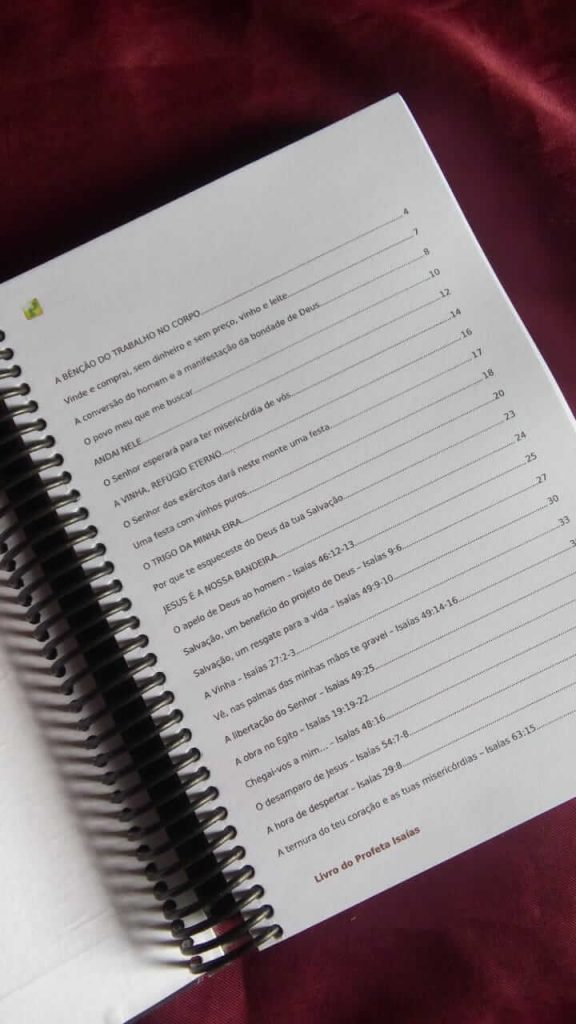 A BÊNÇÃO DO TRABALHO NO CORPO 4
Vinde e comprai, sem dinheiro e sem preço, vinho e leite 7
A conversão do homem e a manifestação da bondade de Deus 8
O povo meu que me buscar 10
ANDAI NELE 12
O Senhor esperará para ter misericórdia de vós 14
A VINHA, REFÚGIO ETERNO 16
O Senhor dos exércitos dará neste monte uma festa 17
Uma festa com vinhos puros 18
O TRIGO DA MINHA EIRA 20
Por que te esqueceste do Deus da tua Salvação 23
JESUS É A NOSSA BANDEIRA 24
O apelo de Deus ao homem – Isaías 46:12-13 25
Salvação, um benefício do projeto de Deus – Isaías 9-6 27
Salvação, um resgate para a vida – Isaías 49:9-10 30
A Vinha – Isaías 27:2-3 33
Vê, nas palmas das minhas mãos te gravei – Isaías 49:14-16
A libertação do Senhor – Isaías 49:25
A obra no Egito – Isaías 19:19-22
Chegai-vos a mim... – Isaías 48:16
O desamparo de Jesus – Isaías 54:7-8
A hora de despertar – Isaías 29:8
A ternura do teu coração e as tuas misericórdias – Isaías 63:15
Livro do Profeta Isaías